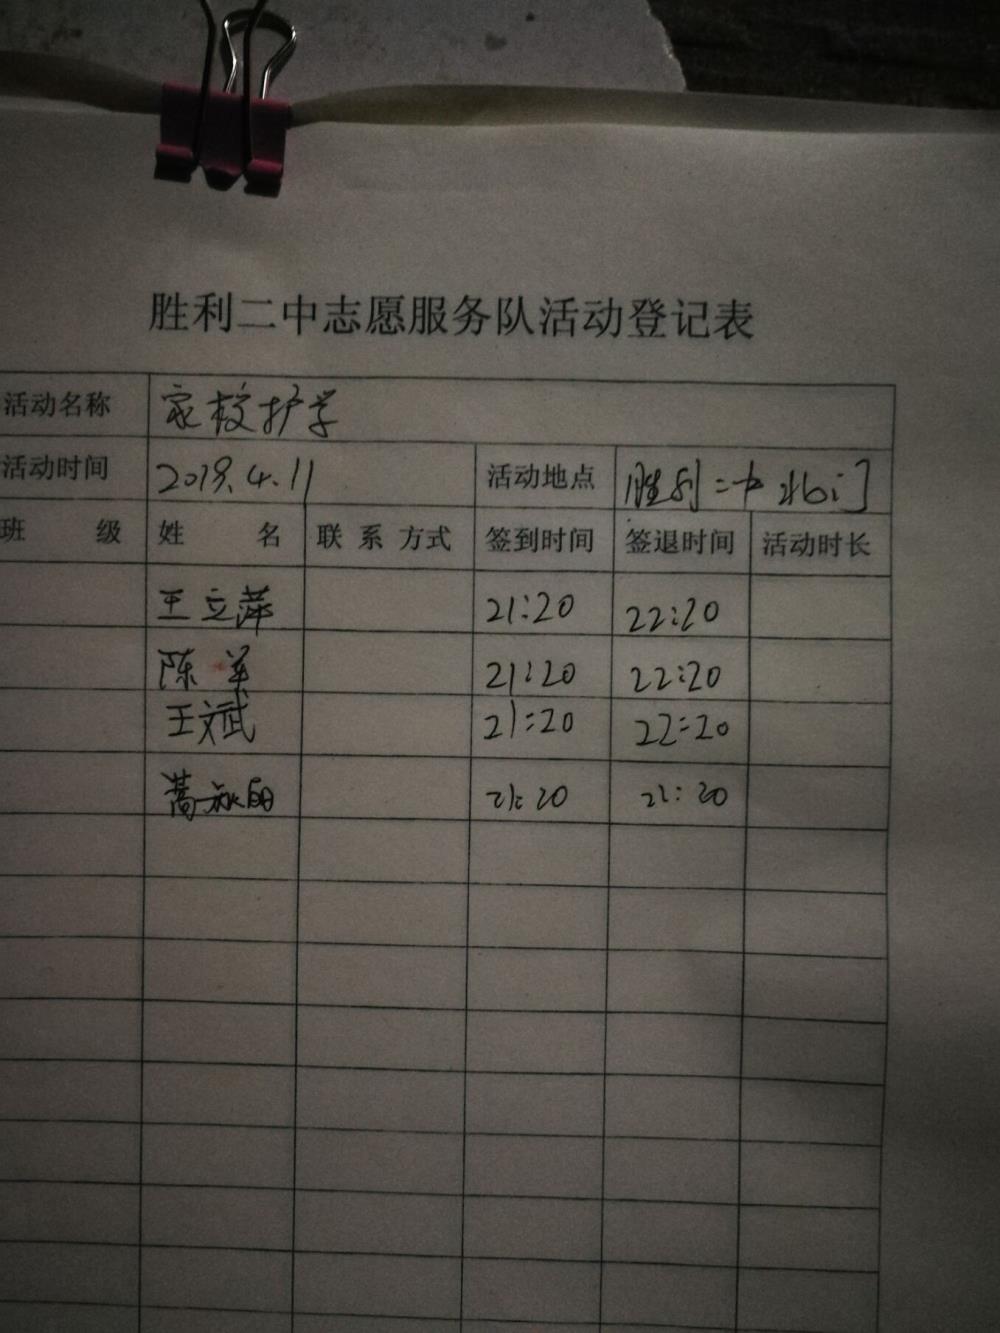 胜利二中志愿服务队活动登记表
活动名称 家校护学
活动时间 2019.4.11 活动地点 胜利二中北门
班 级 姓 名 联系方式 签到时间 签退时间 活动时长
王立萍 21:20 22:20
陈 21:20 22:20
王斌 21:20 22:20
21:20 22:20